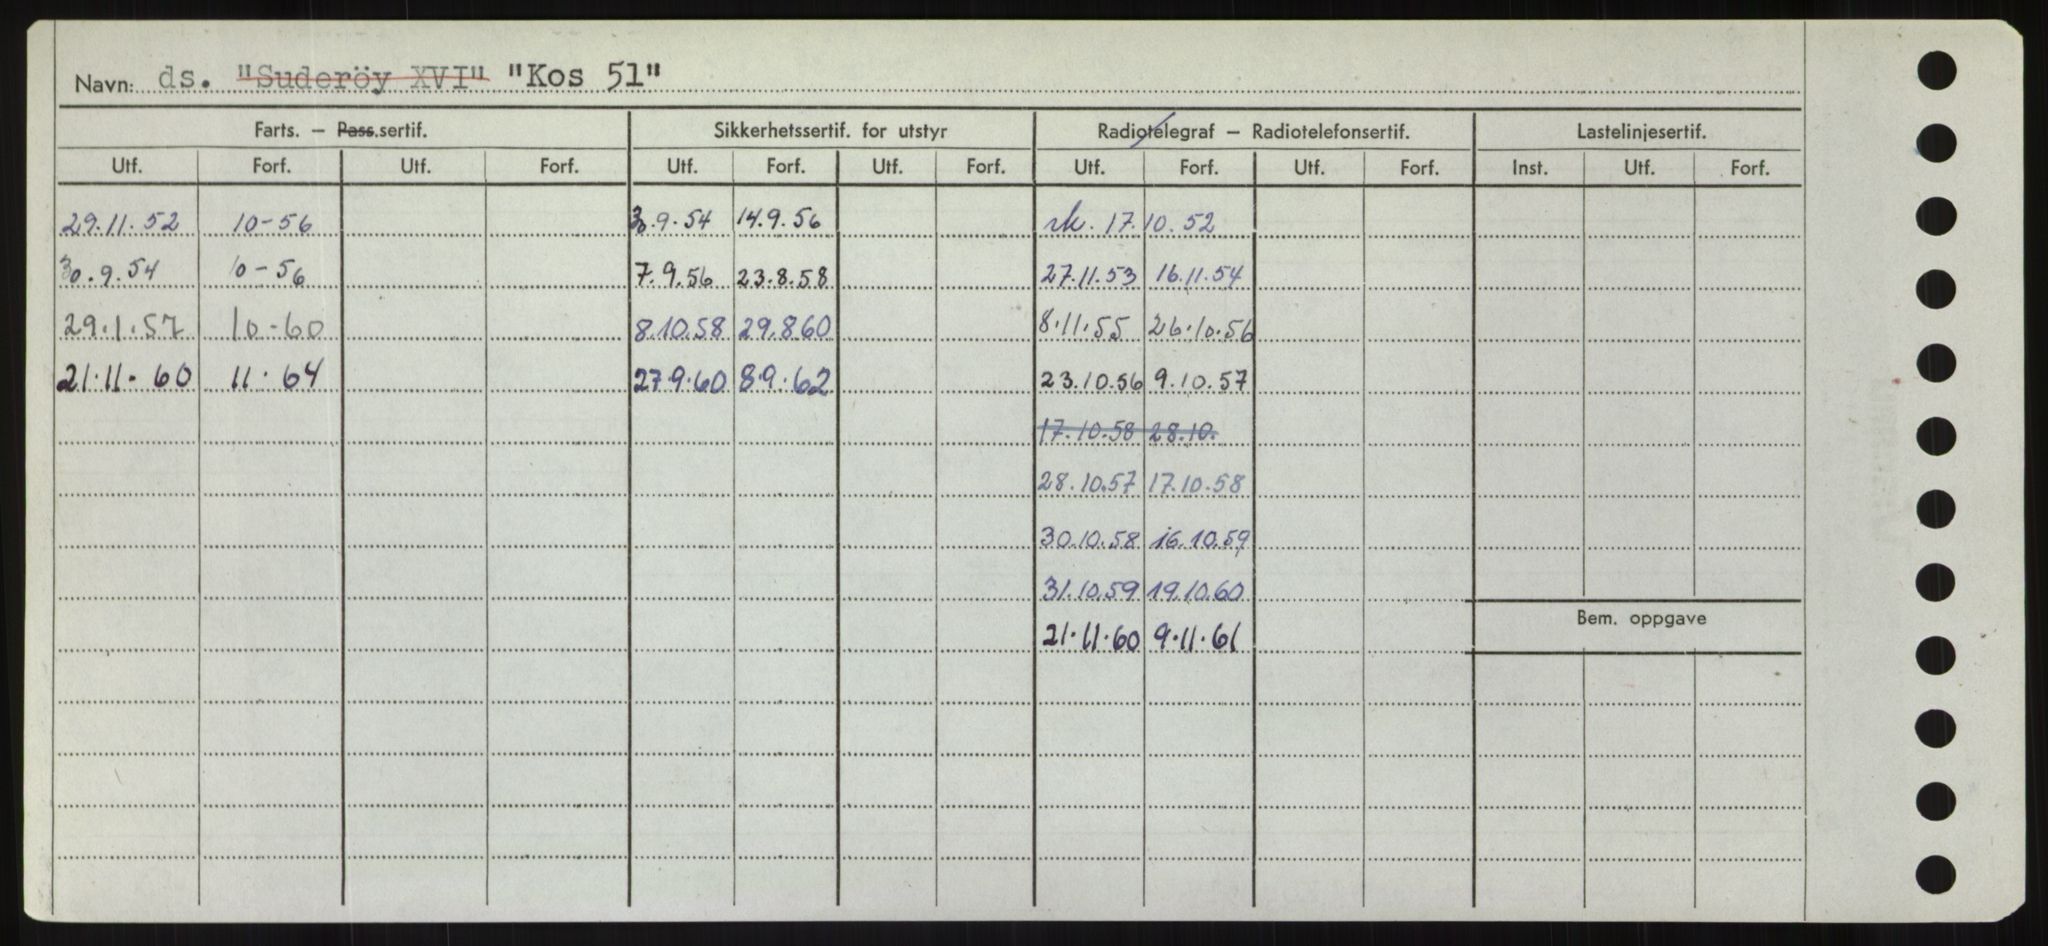 Navn: ds. "Suderöy XVI" "Kos 51"
Farts. – Pass.sertif. Sikkerhetssertif. for utstyr Radiotelegraf – Radiotelefonsertif. Lastelinjesertif.
Utf. Forf. Utf. Forf. Utf. Forf. Utf. Forf. Utf. Forf. Utf. Forf. Inst. Utf. Forf.
29.11.52 10-56 30.9.54 14.9.56 rk. 17.10.52
30.9.54 10-56 7.9.56 23.8.58 27.11.53 16.11.54
29.1.57 10-60 8.10.58 29.8.60 8.11.55 26.10.56
21.11.60 11.64 27.9.60 8.9.62 23.10.56 9.10.57
17.10.58 28.10.
28.10.57 17.10.58
30.10.58 16.10.59
31.10.59 19.10.60
Bem. oppgave
21.11.60 9.11.61